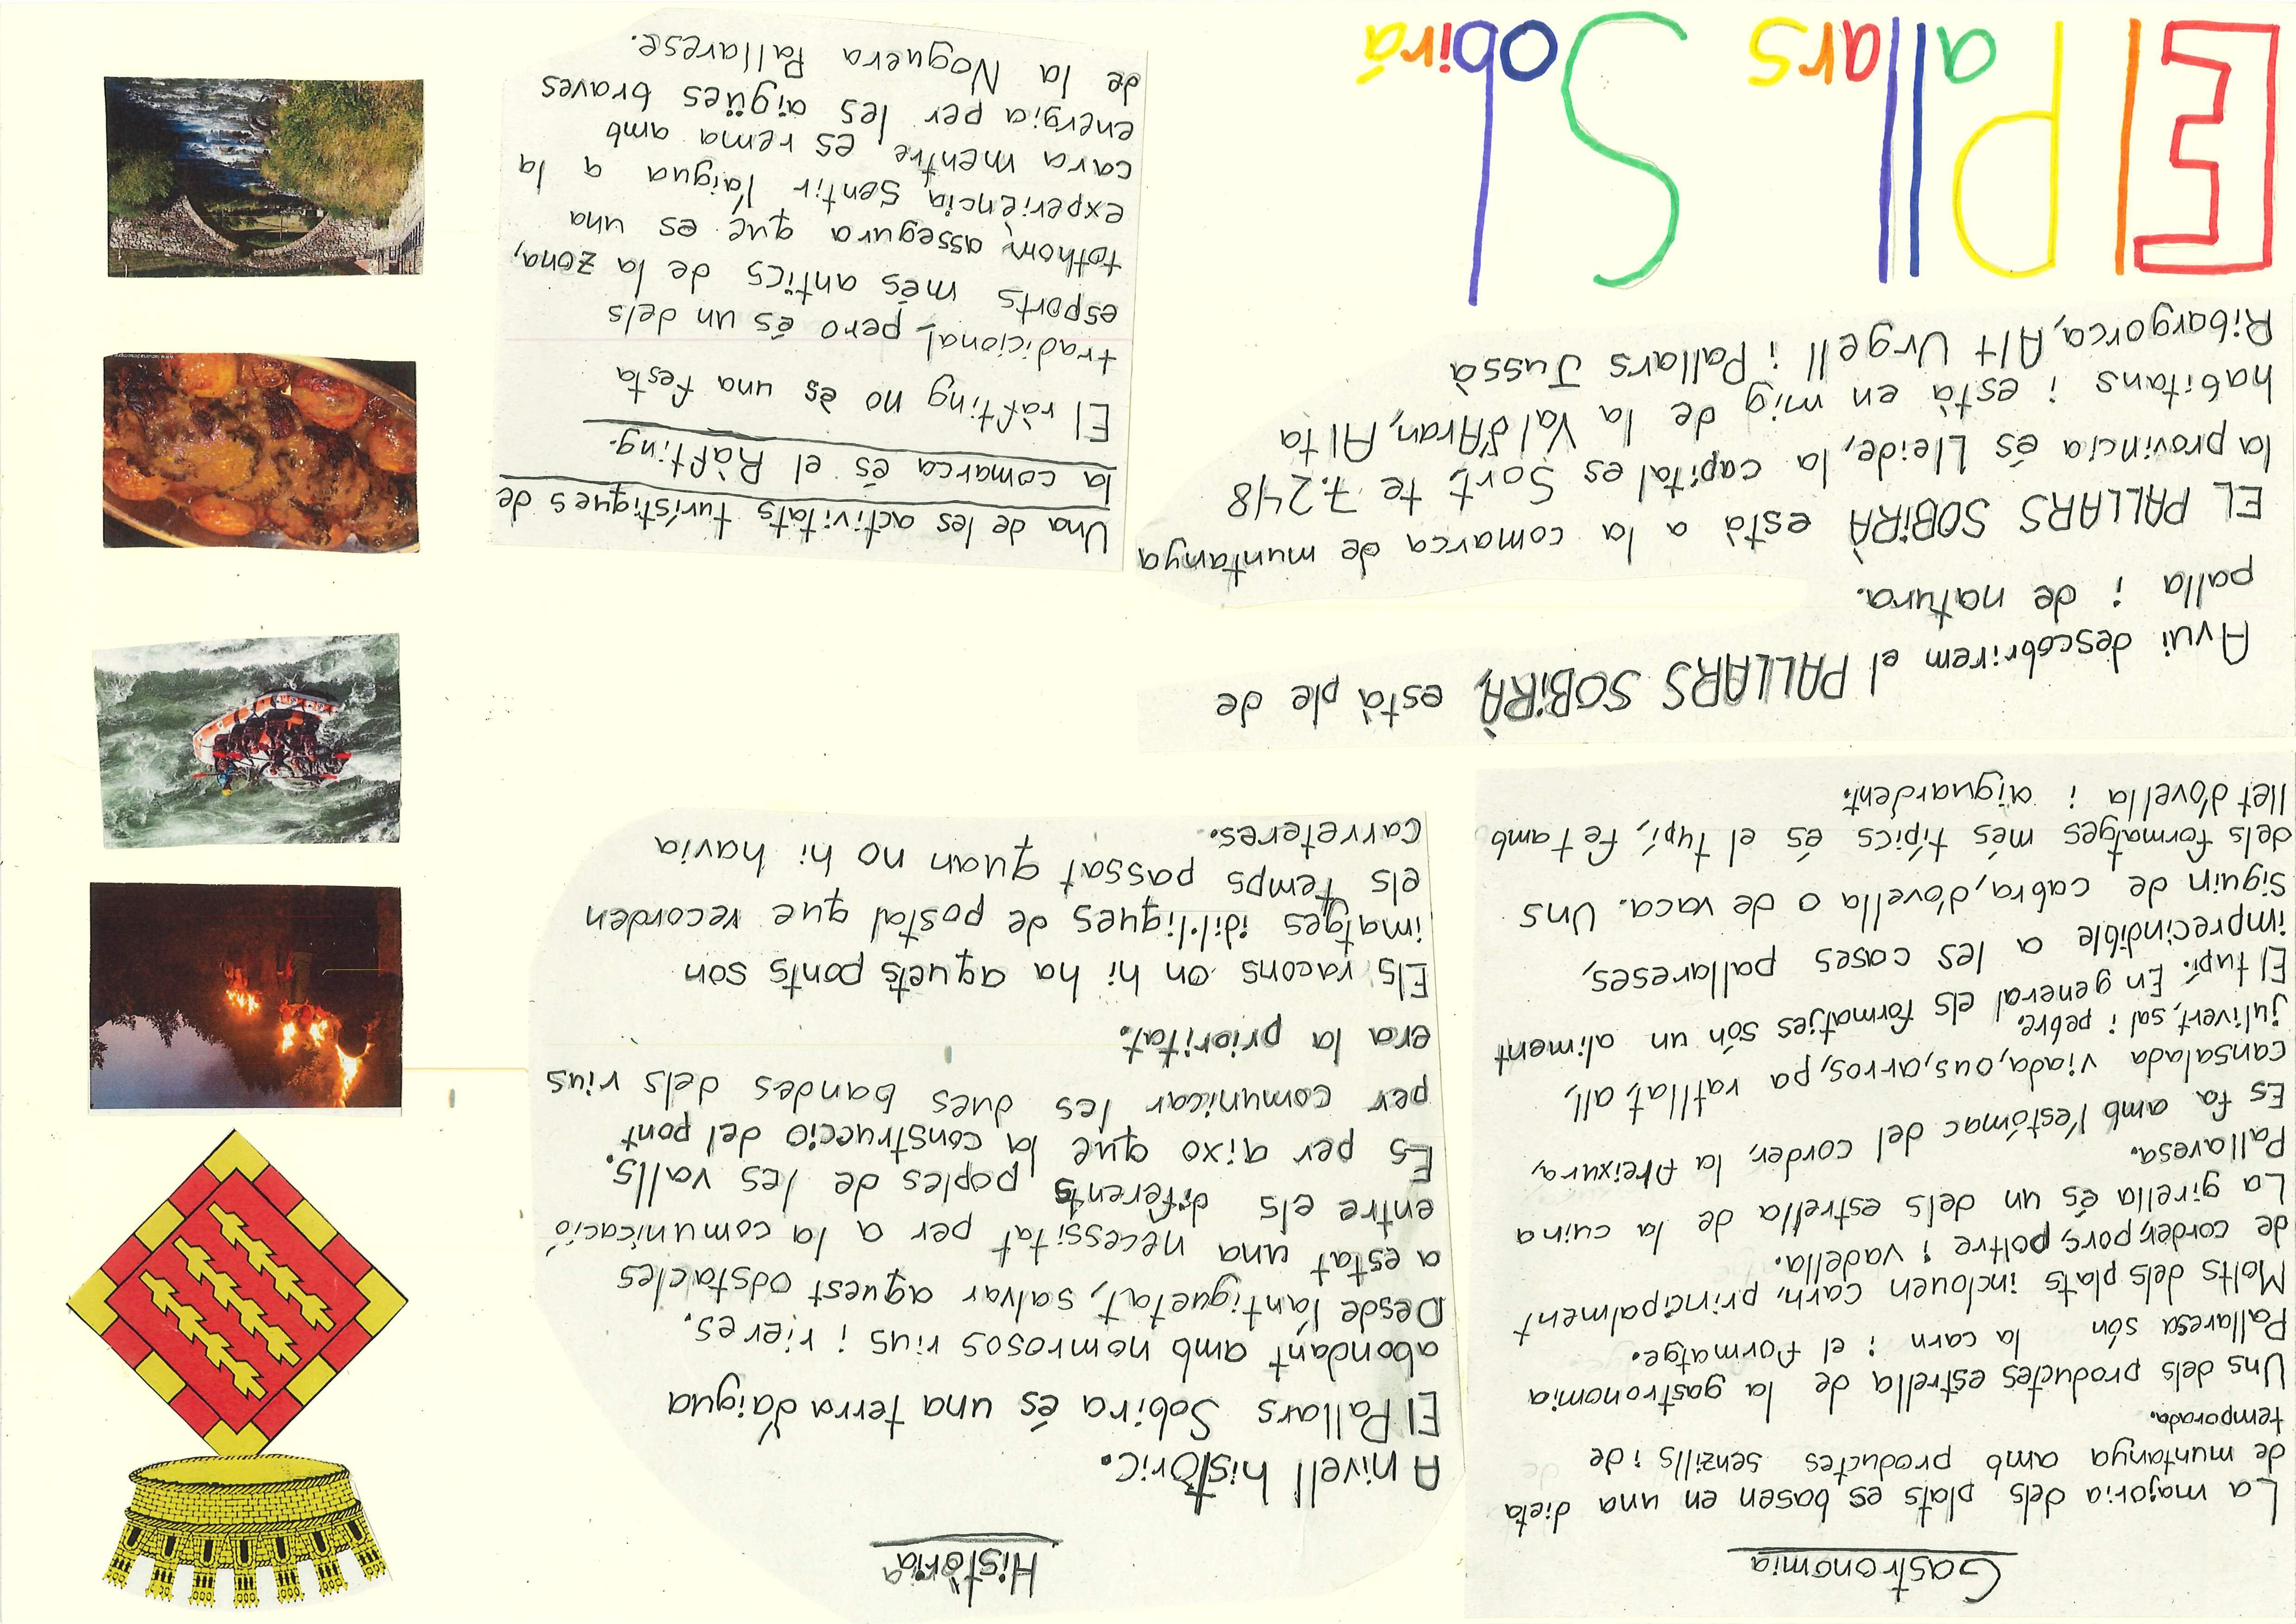 Gastronomia
La majoria dels plats es basen en una dieta
de muntanya amb productes senzills i de
temporada.
Uns dels productes estrella de la gastronomia
Pallaresa són la carn i el formatge.
Molts dels plats inclouen carn, principalment
de corder, porc, poltre i vadella.
La girella és un dels estrella de la cuina
Pallaresa.
Es fa amb l'estómac del corder, la freixura,
cansalada viada, ous, arros, pa ratllat, all,
julivert, sal i pebre.
El tupí. En general els formatjes són un aliment
imprecindible a les cases pallareses,
siguin de cabra, d'ovella o de vaca. Uns
dels formatges més típics és el tupí, fet amb
llet d'ovella i aiguardent.
Història
A nivell històric.
El Pallars Sobira és una terra d'aigua
abondant amb nomrosos rius i rieres.
Desde l'antiguetat, salvar aquest odstacles
a estat una necessitat per a la comunicació
entre els diferents poples de les valls.
Es per aixo que la construcció del pont
per comunicar les dues bandes dels rius
era la prioritat.
Els racons on hi ha aquets ponts són
imatges idil·liques de postal que recorden
els temps passat quan no hi havia
carreteres.
Avui descobrirem el PALLARS SOBIRÀ, està ple de
palla i de natura.
EL PALLARS SOBIRÀ està a la comarca de muntanya
la provincia és Lleide, la capital es Sort, te 7.248
habitans i està en mig de la Val d'Aran, Alta
Ribargorca, Alt Urgell i Pallars Jussà
Una de les activitats turístiques de
la comarca és el Ràfting.
El ràfting no ès una festa
tradicional, pero és un dels
esports més antics de la zona,
tothom assegura que es una
experiència, sentir l'aigua a la
cara mentre es rema amb
energia per les aigües braves
de la Noguera Pallarese.
El Pallars Sobirá